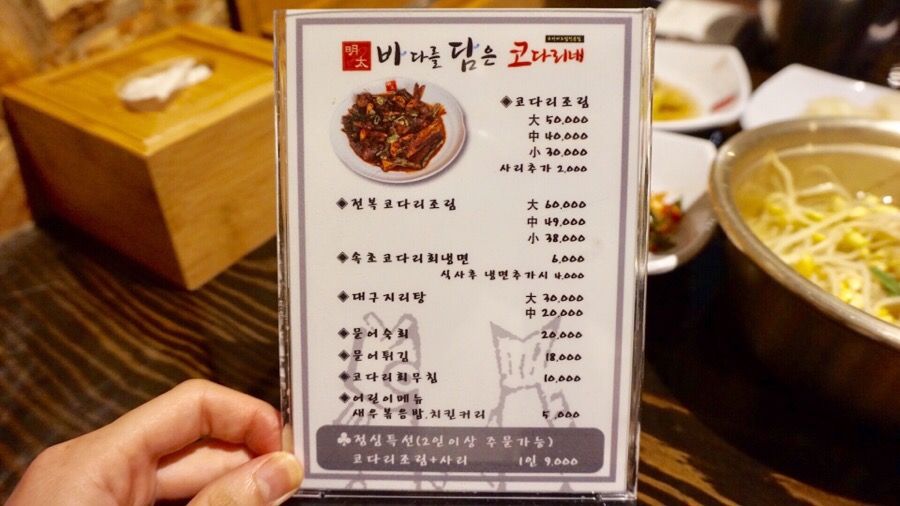 明太 바다를 담은 코다리네
◈코다리조림
大 50,000
中 40,000
小 30,000
사리추가 2,000
◈전복코다리조림 大 60,000
中 49,000
小 38,000
◈속초코다리회냉면 6,000
식사후 냉면추가시 4,000
◈대구지리탕 大 30,000
中 20,000
◈문어숙회 20,000
◈문어튀김 18,000
◈코다리회무침 10,000
◈어린이메뉴
새우볶음밥.치킨커리 5,000
♣점심특선(2인이상 주문가능)
코다리조림+사리 1인 9,000